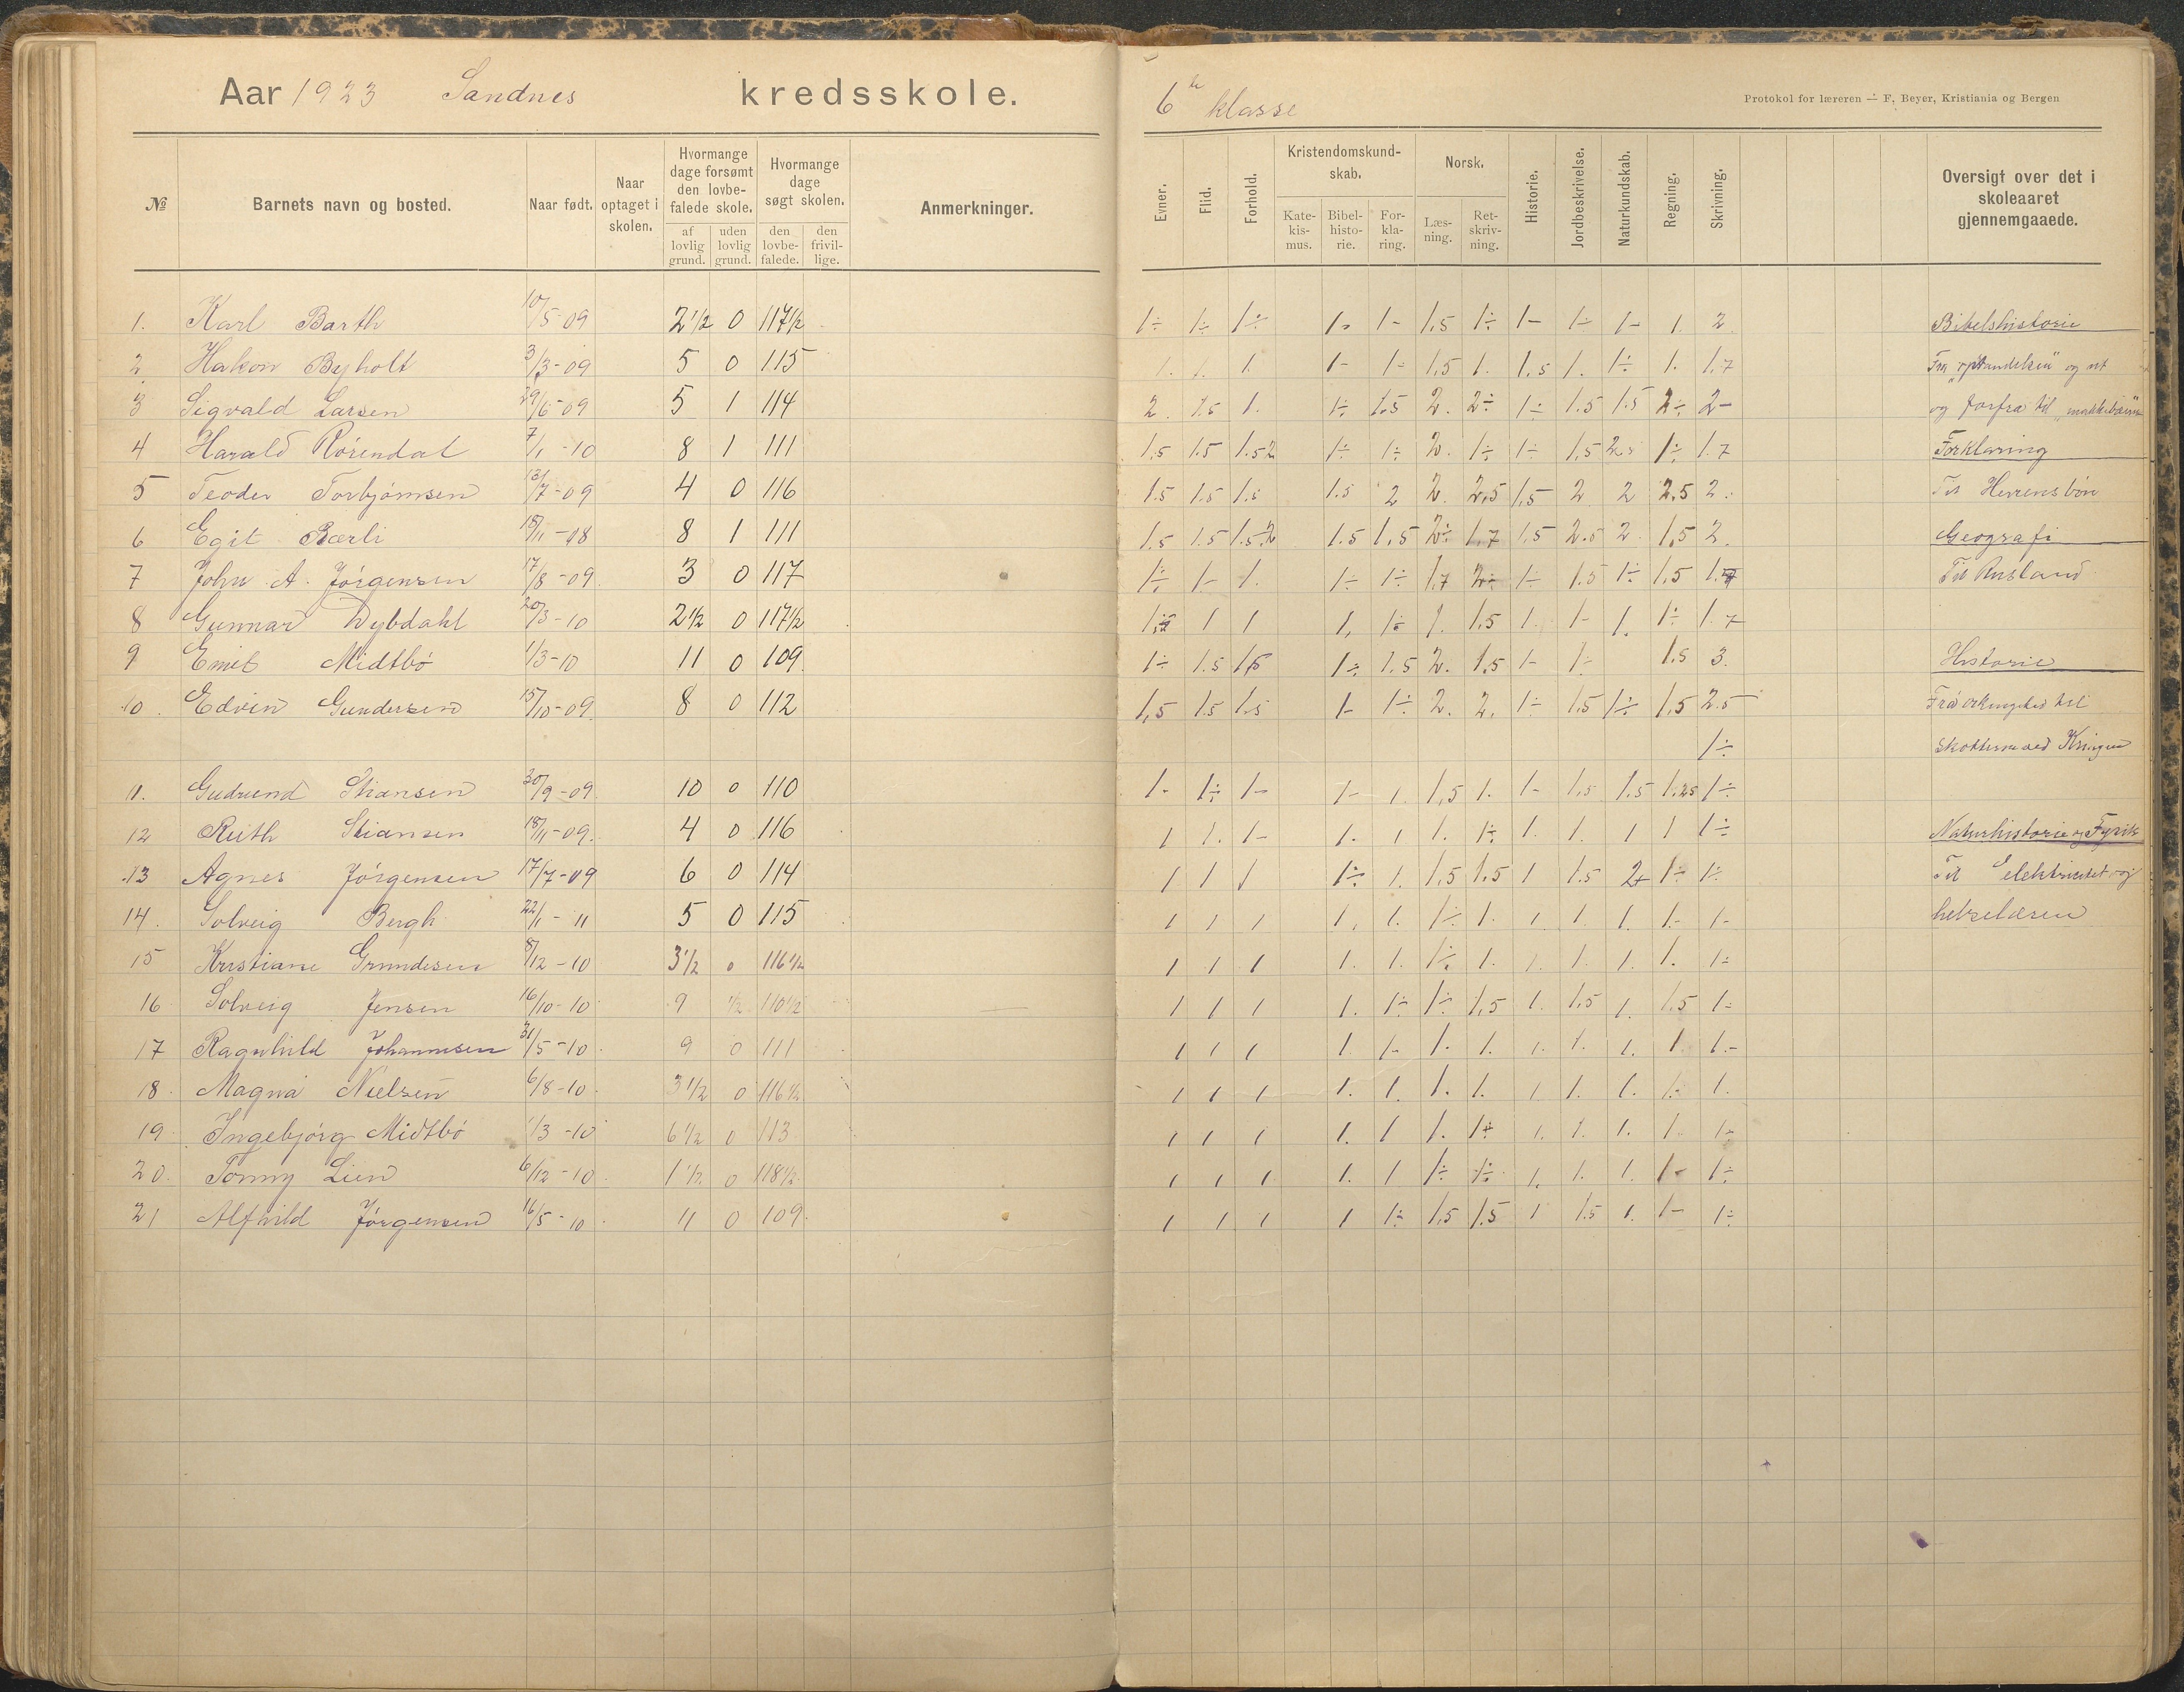 Aar 1923 Sandnes kredsskole.
№ Barnets navn og bosted. Naar født. Naar optaget i skolen. Hvormange dage forsømt den lovbefalede skole. af lovlig grund. uden lovlig grund. Hvormange dage søgt skolen. den lovbefalede. den frivillige. Anmerkninger.
1. Karl Barth 10/5-09 2½ 0 117½
2 Hakon Byholt 3/3-09 5 0 115
3 Sigvald Larsen 29/6-09 5 1 114
4 Harald Rørendal 7/1-10 8 1 111
5 Teodor Torbjørnsen 13/7-09 4 0 116
6 Egil Bærli 18/11-08 8 1 111
7 John A. Jørgensen 17/8-09. 3 0 117
8 Gunnar Dybdahl 20/3-10 2½ 0 117½
9 Emil Midtbø 1/3-10 11 0 109.
10. Edvin Gundersen 15/10-09. 8 0 112
11. Gudrund Stiansen 30/9-09 10 0 110
12 Ruth Stiansen 18/11-09. 4 0 116
13 Agnes Jørgensen 17/7-09 6 0 114
14. Solveig Bergh 22/1-11 5 0 115
15 Kristiane Grundesen 8/12-10 3½ 0 116½
16 Solveig Jensen 16/10-10 9 ½ 110½
17 Ragnhild Johannesen 31/5-10 9 0 111
18. Magna Nielsen 6/8-10 3½ 0 116½
19 Ingebjørg Midtbø 1/3-10 6½ 0 113
20. Tonny Lien 6/12-10 1½ 0 118½
21 Alfhild Jørgensen 16/5-10 11 0 109
6te klasse
Protokol for læreren — F. Beyer, Kristiania og Bergen
Evner. Flid. Forhold. Kristendomskundskab. Katekismus. Bibelhistorie. Forklaring. Norsk. Læsning. Retskrivning. Historie. Jordbeskrivelse. Naturkundskab. Regning. Skrivning. Oversigt over det i skoleaaret gjennemgaaede.
1÷ 1÷ 1÷ 1- 1- 1,5 1÷ 1- 1÷ 1- 1. 2. Bibelshistorie
1. 1. 1. 1- 1- 1,5 1. 1,5 1. 1÷ 1. 1,7 Fra og ut
2. 1.5 1. 1÷ 1.5 2. 2÷ 1÷ 1.5 1.5 2÷ 2- og forfra til
1,5 1.5 1.5 2 1÷ 1÷ 2. 1÷ 1÷ 1,5 2. 1÷ 1.7 Forklaring
1.5 1.5 1.5 1.5 2 2. 2,5 1,5 2 2 2.5 2. Til Herrensbøn
1.5 1.5 1.5 2 1.5 1,5 2÷ 1.7 1,5 2.5 2. 1,5 2. Geografi
1÷ 1- 1. 1÷ 1÷ 1,7 2÷ 1÷ 1.5 1÷ 1,5 1.7 Til Rusland
1 1 1, 1÷ 1. 1.5 1. 1- 1. 1÷ 1.7
1÷ 1.5 1.5 1÷ 1.5 2. 1,5 1- 1- 1.5 3. Historie
1,5 1.5 1.5 1- 1÷ 2. 2. 1÷ 1.5 1÷ 1,5 2.5 til
1÷ Kringen
1- 1÷ 1- 1- 1. 1,5 1. 1- 1.5 1.5 1.25 1÷
1 1. 1- 1. 1 1. 1÷ 1. 1. 1 1 1÷ Naturhistorie og Fysik
1 1 1 1÷ 1. 1,5 1.5 1 1.5 2+ 1÷ 1÷ Til og
1 1 1 1. 1. 1÷ 1. 1. 1. 1. 1- 1- helselæren
1 1 1 1. 1. 1÷ 1. 1. 1. 1. 1. 1÷
1 1 1 1. 1÷ 1÷ 1,5 1. 1,5 1. 1.5 1÷
1 1 1 1 1- 1. 1. 1. 1. 1. 1 1.-
1 1 1 1. 1. 1. 1. 1. 1. 1. 1. 1.
1 1 1 1. 1 1. 1÷ 1. 1. 1. 1. 1-
1 1 1 1. 1 1÷ 1÷ 1. 1. 1. 1- 1÷
1 1 1 1 1÷ 1,5 1.5 1 1.5 1. 1- 1÷